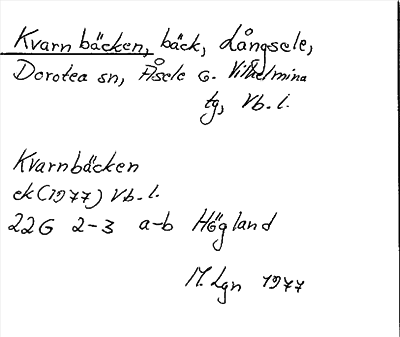 Kvarnbäcken, bäck, Långsele,
Dorotea sn, Åsele o. Vilhelmina
tg, Vb. l.
Kvarnbäcken
ek (1977) Vb. l.
22G 2-3 a-b Högland
M. Lgn 1977